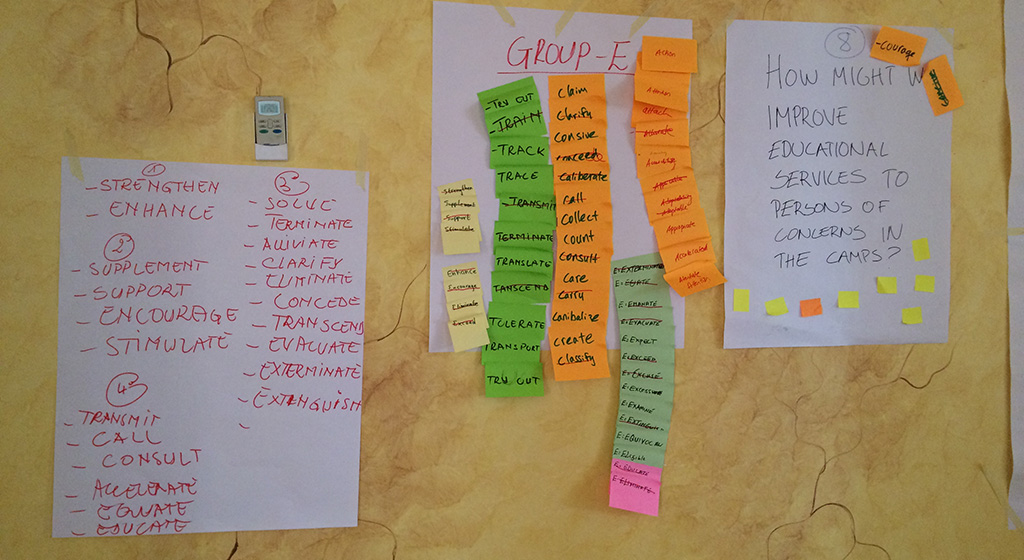 1
- STRENGTHEN
- ENHANCE
2
- SUPPLEMENT
- SUPPORT
- ENCOURAGE
- STIMULATE
4
TRANSMIT
- CALL
- CONSULT
- ACCELERATE
- EQUATE
- EDUCATE
3
- SOLVE
- TERMINATE
- ALIVIATE
- CLARIFY
- ELIMINATE
- CONCEDE
- TRANSCEND
- EVALUATE
- EXTERMINATE
- EXTINGUISH
-
GROUP-E
Strengthen
Supplement
Support
Stimulate
ENHANCE
Encourage
Eliminate
Exceed
- TRY OUT
- TRAIN
- TRACK
TRACE
- TRANSMIT
TERMINATE
TRANSLATE
TANSCEND
TOLERATE
TRANSPORT
TRY OUT
Claim
Clarify
Consive
Caliberate
Call
Collect
Count
Consult
Care
Carry
Canibalize
create
Classify
Action
Attention
attach
Appropriate
E: EVALUATE
E: EXPECT
E: EXCEED
E: EXAMINE
E: EQUIVOCAL
E: Eligible
E: EDUCATE
E: ELIMINATE
8
- Courage
HOW MIGHT W
IMPROVE
EDUCATIONAL
SERVICES TO
PERSONS OF
CONCERNS IN
THE CAMPS?